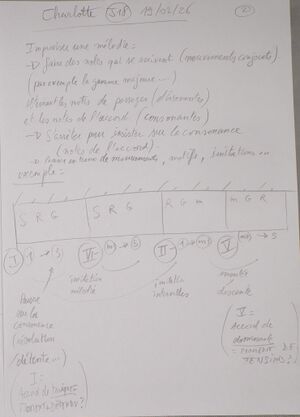 Charlotte J18 19/02/26 ②
Improviser une mélodie =
→ faire des notes qui se suivent (mouvements conjoints)
(par exemple la gamme majeure ...)
les notes de passage (dissonantes)
et les notes de l'accord (consonantes)
→ S'arrêter pour insister sur la consonance
(notes de l'accord)
→ mouvements, motifs, imitations ...
exemple =
S R G S R G R G m m G R
I 1 → 3 VI m → 3 II 1 → m V m → S
imitation
mélodie
imitation
intervalles
montée
descente
Pause
sur la
consonance
(résolution
/détente ...)
I =
Accord de tonique
V =
Accord de
dominante
= moment DE
TENSIONS !